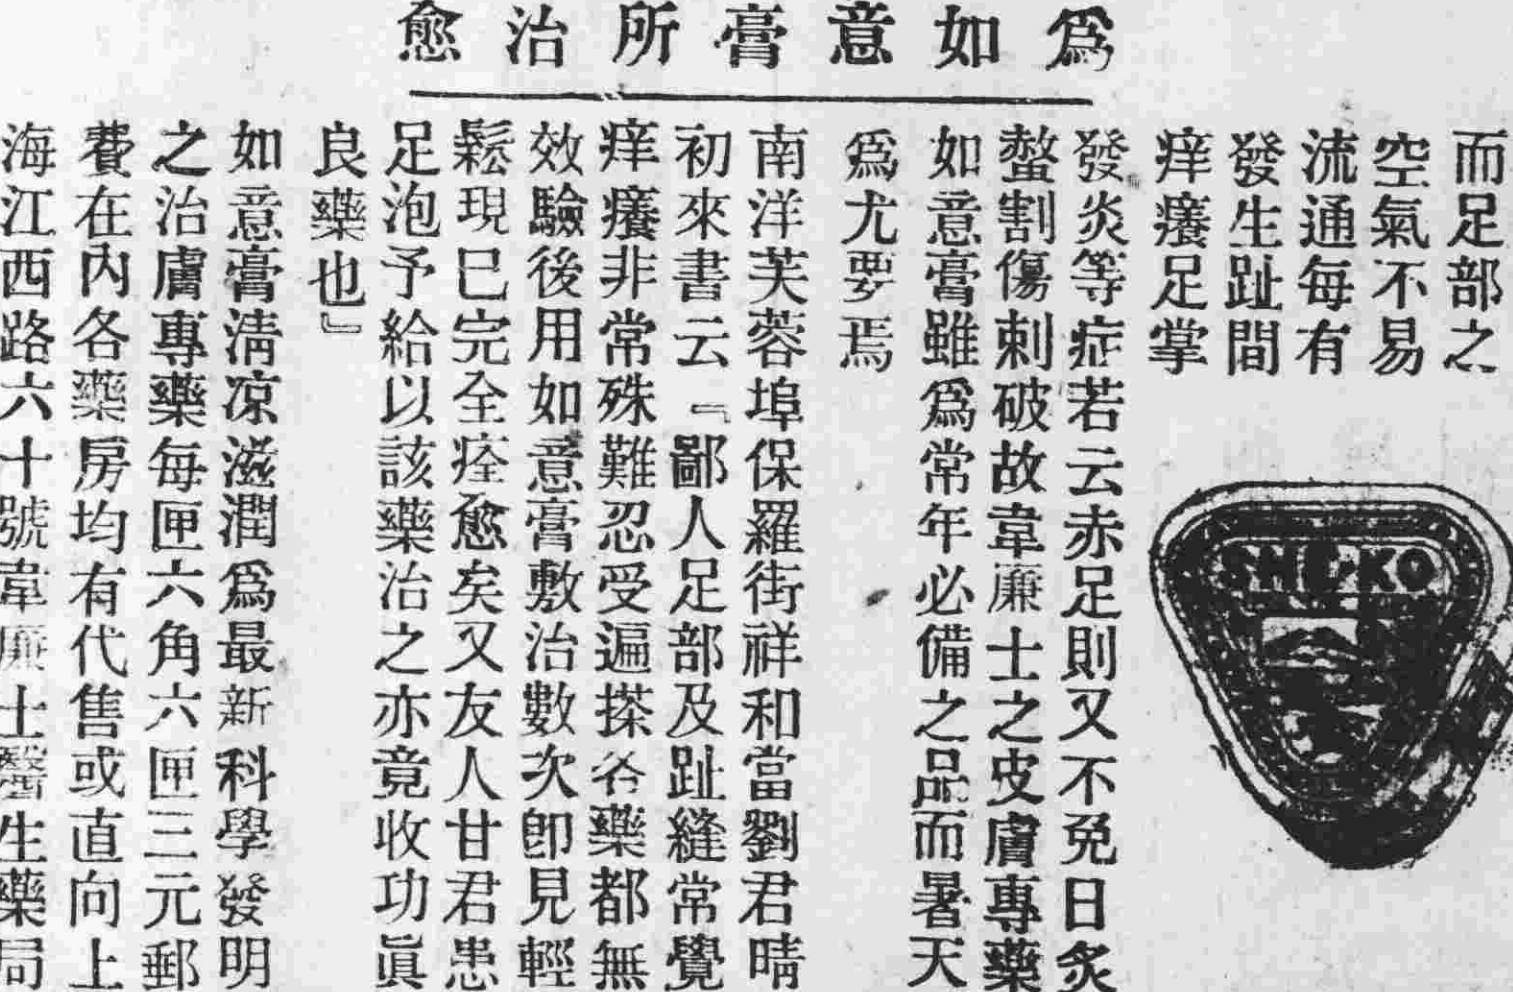 爲如意膏所治愈
而足部之
空氣不易
流通每有
發生趾間
痒癢足掌
發炎等症若云赤足則又不免日炙
螫割傷刺破故韋廉士之皮膚專藥
如意膏雖爲常年必備之品而暑天
爲尤要焉
南洋芙蓉埠保羅街祥和當劉君晴
初來書云『鄙人足部及趾縫常覺
痒癢非常殊難忍受遍搽各藥都無
效驗後用如意膏敷治數次卽見輕
鬆現已完全痊愈矣又友人甘君患
足泡予給以該藥治之亦竟收功眞
良藥也』
如意膏淸凉滋潤爲最新科學發明
之治膚專藥每匣六角六匣三元郵
費在內各藥房均有代售或直向上
海江西路六十號韋廉士醫生藥局